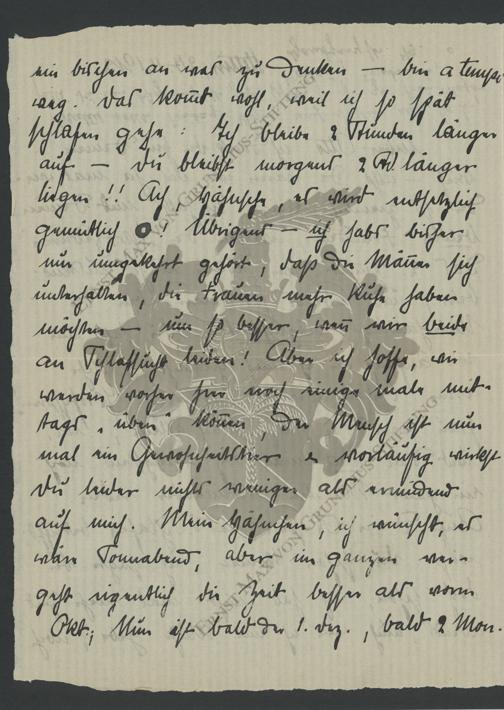 ein bischen an was zu denken – bin a tempo
weg. Das kom̅t wohl, weil ich so spät
schlafen gehe: Ich bleibe 2 Stunden länger
auf – Du bleibst morgens 2 Std länger
liegen!! Ach, Hähnsche, es wird entsetzlich
gemütlich! Übrigens – ich habs bisher
nur umgekehrt gehört, daß die Män̅er sich
unterhalten, die Frauen mehr Ruhe haben
möchten – um so besser, wen̅ wir beide
an Schlafsucht leiden! Aber ich hoffe, wir
werden vorher hier noch einige male mit-
tags „üben" kön̅en, der Mensch ist nun
mal ein Gewohnheitstier & vorläufig wirkst
Du leider nichts weniger als ermüdend
auf mich. Mein Hähnchen, ich wünscht, es
wäre Sonnabend, aber im ganzen ver-
geht eigentlich die Zeit besser als vorm
Okt.; Nun ist bald der 1. Dez., bald 2 Mon.
ERNST MAX VON GRUNELIUS-STIFTUNG